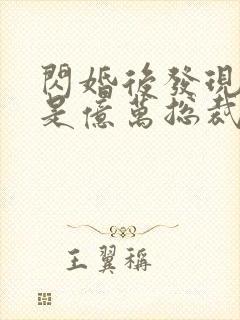 閃婚後發現
是億萬總裁
王翼稱